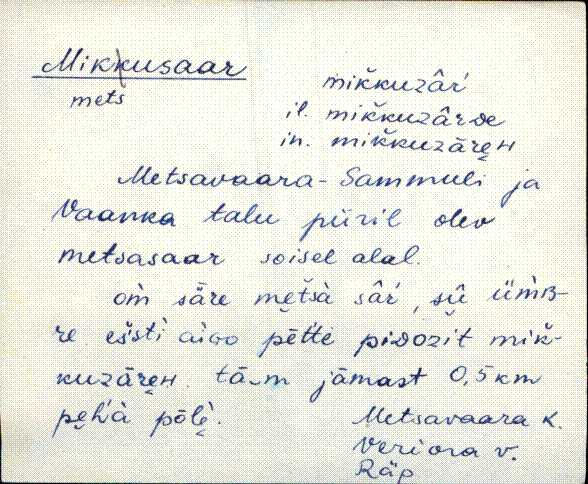 Mikkusaar
mets
mikkuzâŕ
il. mikkuzâŕde
in. mikkuzāŕeн
Metsavaara-Sammuli ja
Vaanka talu piiril olev
metsasaar soisel alal.
om̀ sāre metsà sâŕ, sū̂ üm̀в-
re ešsti aìvo pètte piᴅozit mik̆-
kuzāreн. tā‿m jāmast 0,5 km
pèh̀à pōlè.
Metsavaara k.
Veriora v.
Räp